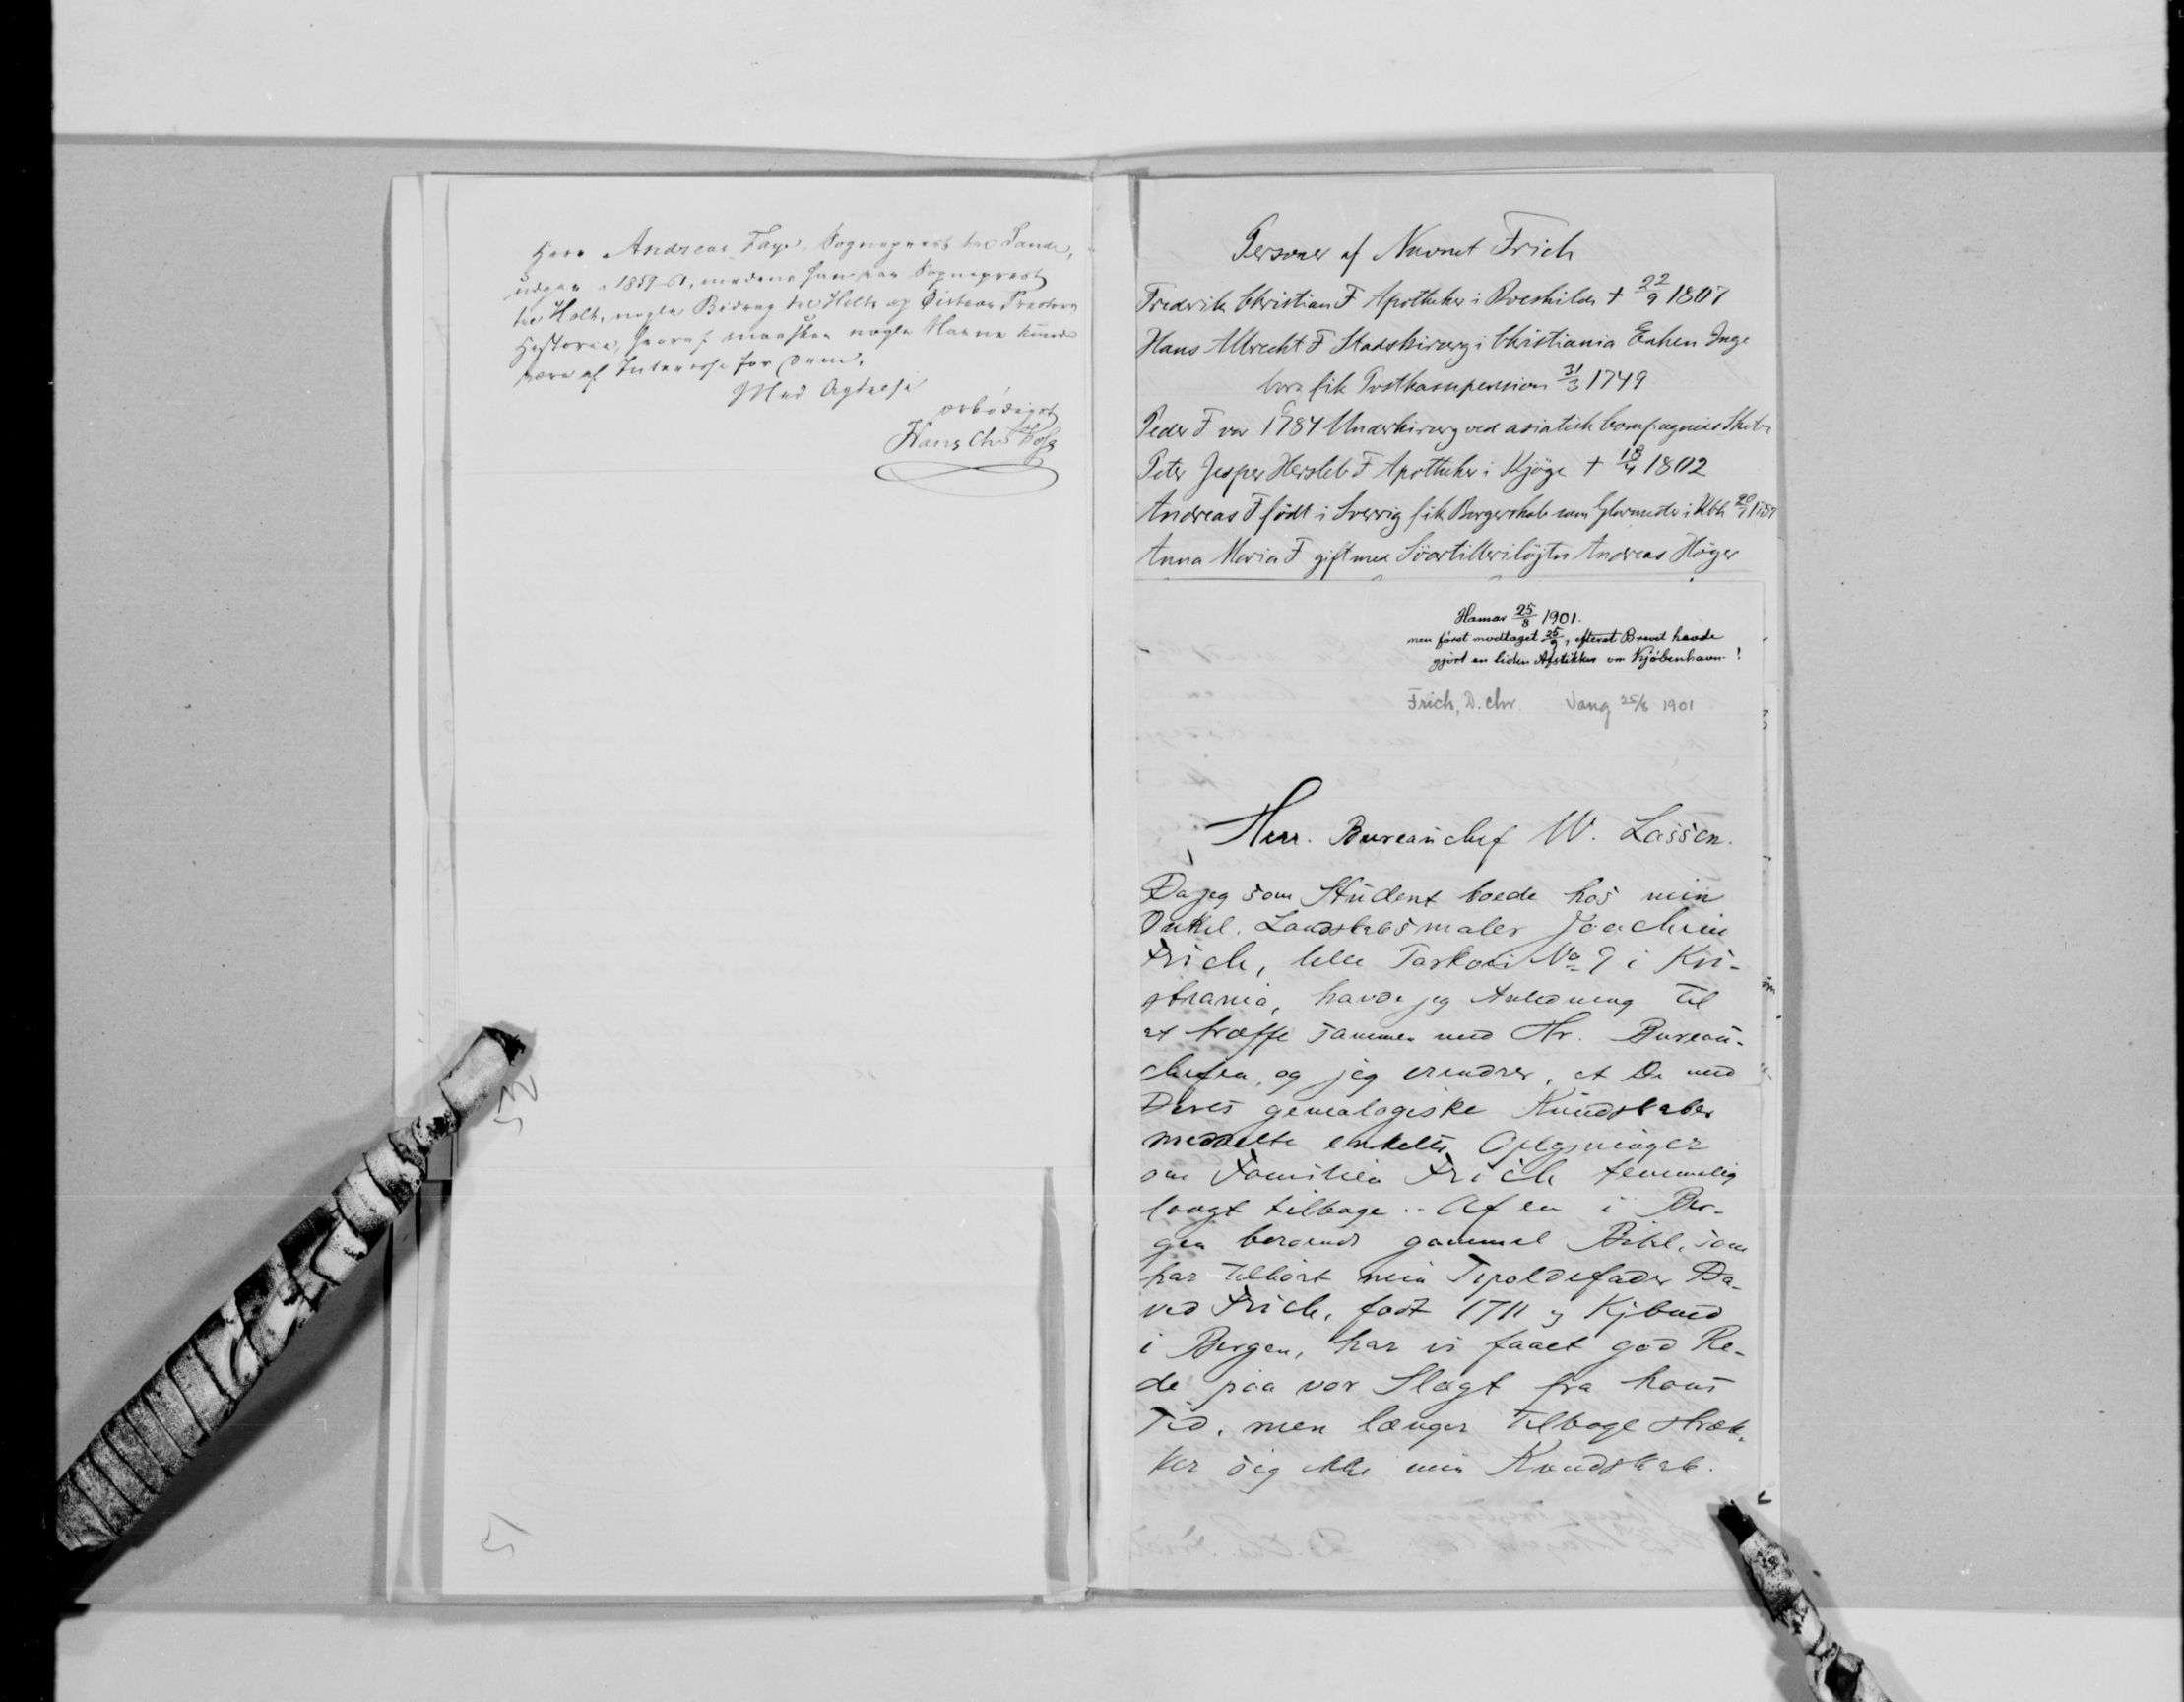 Herr Andreas Faye, Sogneprest til Sande,
udgav i 1859-61, medens han var Sogneprest
til Holt, nogle Bidrag til Holts og Distans Presters
Historie, hvoraf maaskee nogle Navne kunde
være af Interesse for Dem.
Med Agtelse
ærbödigst
Hans Chr
52
5
Personer af Navnet Frich
Frederik Christian F Apotheker i Roeskilde + 22/9 1807
Hans Albrecht F Stadskirurg i Christiania Enken Inge
borg fik Postkassepension 31/3 1749
Peder F var 1784 Underkirurg ved asiatisk Compagnies Skibe
Peter Jesper Hersleb F Apotheker i Kjöge + 18/4 1802
Andreas F födt i Sverrig fik Borgerskab som Glarmester i Kbh
Anna Maria F gift med Söartillerilöjtn Andreas Höyer
Hamar 25/8 1901.
men först modtaget 25/9, efterat Brevet havde
gjort en liden Afstikker om Kjöbenhavn!
Frich, D. Chr. Vang 25/8 1901
Herr. Bureauchef W. Lassen.
Da jeg som Student boede hos min
Onkel. Landskabsmaler Joachim
Frich, lille Parkvei No 9 i Kri-
stiania, havde jeg Anledning til
at træffe sammen med Hr. Bureau-
chefen, og jeg erindrer, at De med
Deres genealogiske Kundskaber
meddelte enkelte Oplysninger
om Familien Frich temmelig
langt tilbage. - Af en i Ber-
gen beroende gammel Bibel, som
har tilhört min Tipoldefader Da-
vid Frich, födt 1711 og Kjbmd
i Bergen, har vi faaet god Re-
de paa vor Slægt fra hans
Tid, men længer tilbage stræk-
ker sig ikke min Kundskab.